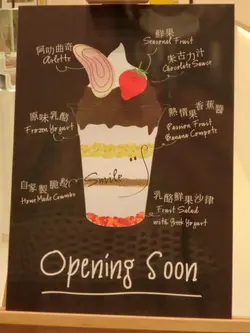 鮮果
Seasonal Fruit
阿叻曲奇
Arlette
朱古力汁
Chocolate Sauce
原味乳酪
Frozen Yogurt
熱情果香蕉醬
Passion Fruit
Banana Compote
Smile
自家製脆粒
Home Made Crumble
乳酪鮮果沙律
Fruit Salad
with Greek Yogurt
Opening Soon